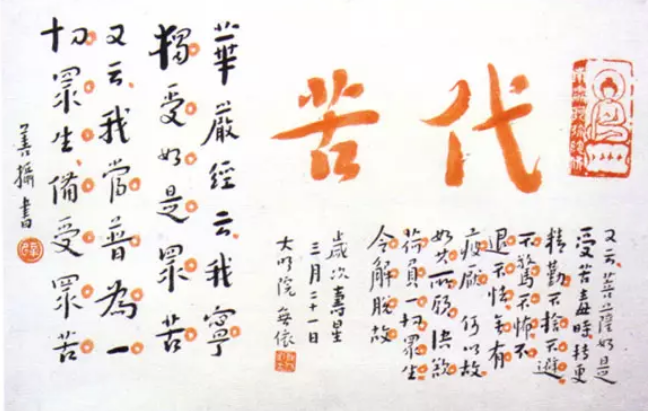 代苦
又云菩薩如是
受苦毒時轉更
精勤不捨不避
不驚不怖不
退不怯無有
疲厭何以故
如其所願決欲
荷負一切眾生
令解脫故
歲次壽星
三月二十一日
大明院
華嚴經云我寧
獨受如是眾苦
又云我當普為一
切眾生備受眾苦
善攝書